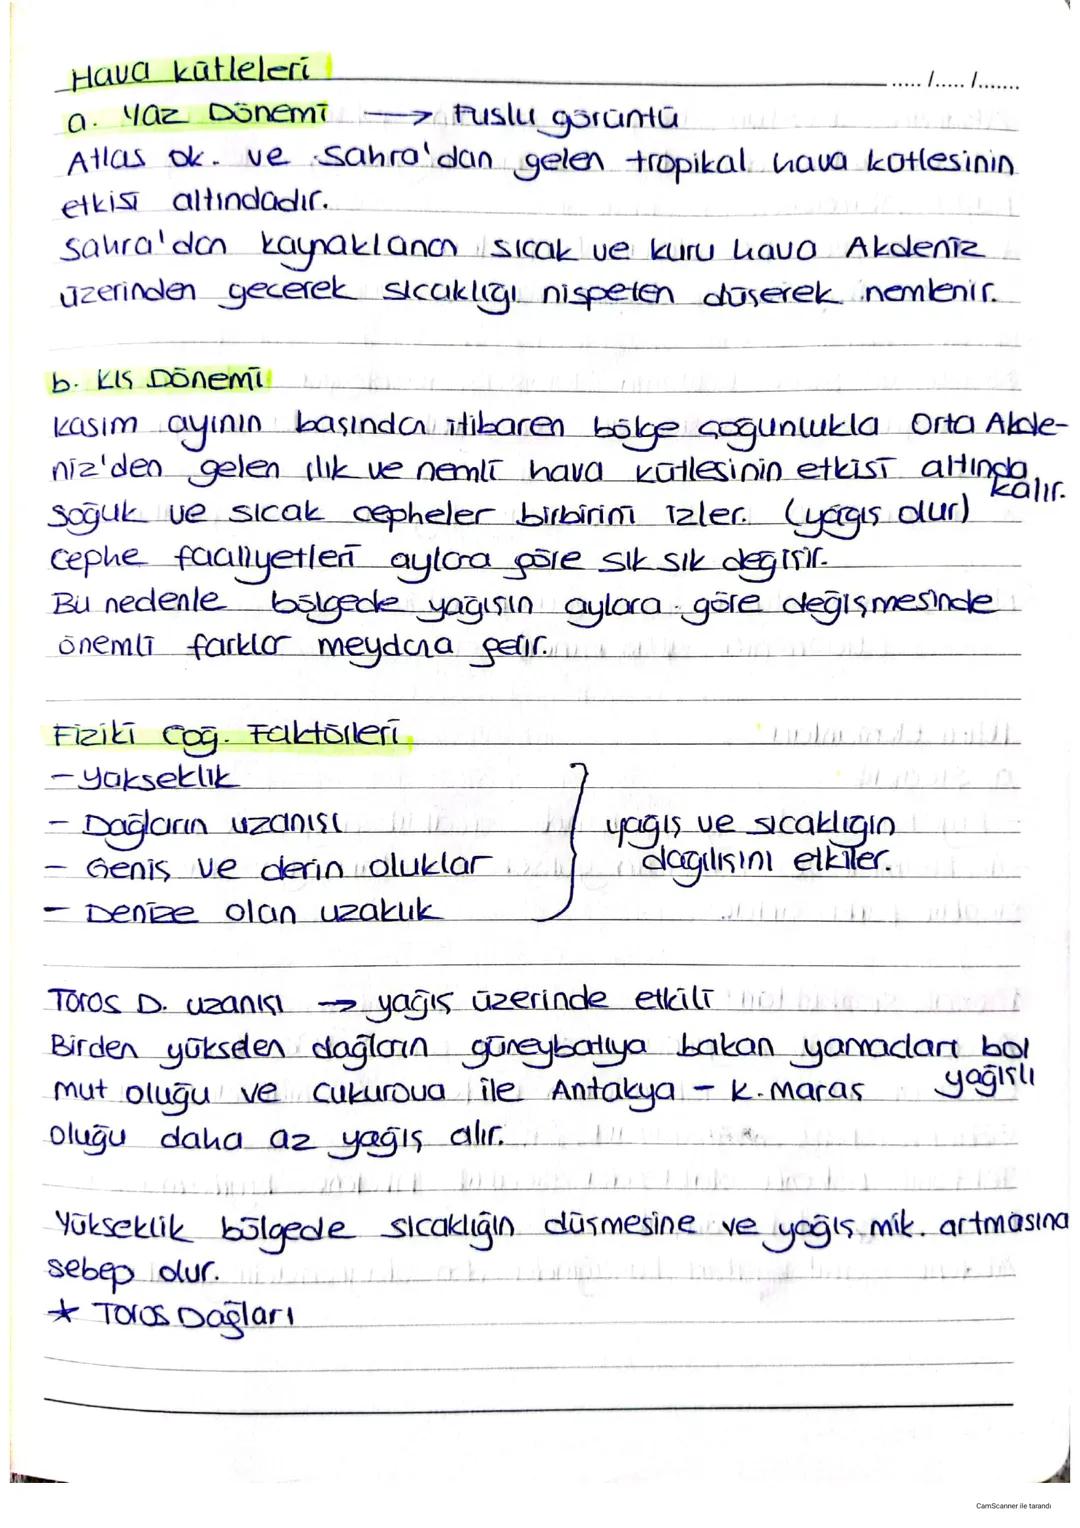 Hava kütleleri
..... /..... /.......
a. Yaz Dönemi → Puslu görüntü
Atlas ok. ve Sahra'dan gelen tropikal hava kütlesinin
etkisi altındadır.
Sahra'dan kaynaklanan sıcak ve kuru hava Akdeniz
üzerinden geçerek sıcaklığı nispeten düşerek nemlenir.
b. Kış Dönemi
Kasım ayının başından itibaren bölge çoğunlukla Orta Akde-
niz'den gelen ılık ve nemli hava kütlesinin etkisi altında
kalır.
Soğuk ve sıcak cepheler birbirini izler. (yağış olur)
Cephe faaliyetleri aylara göre sık sık değişir.
Bu nedenle bölgede yağışın aylara göre değişmesinde
önemli farklar meydana gelir.
Fiziki Coğ. Faktörleri
- Yükseklik
- Dağların uzanışı
- Geniş ve derin oluklar
- Denize olan uzaklık
yağış ve sıcaklığın
dağılışını etkiler.
Toros D. uzanışı → yağış üzerinde etkili
Birden yükselen dağların güneybatıya bakan yamaçları bol
yağışlı
Mut oluğu ve Çukurova ile Antakya - K. Maraş
oluğu daha az yağış alır.
Yükseklik bölgede sıcaklığın düşmesine ve yağış mik. artmasına
sebep olur.
★ Toros Dağları
CamScanner ile tarandı